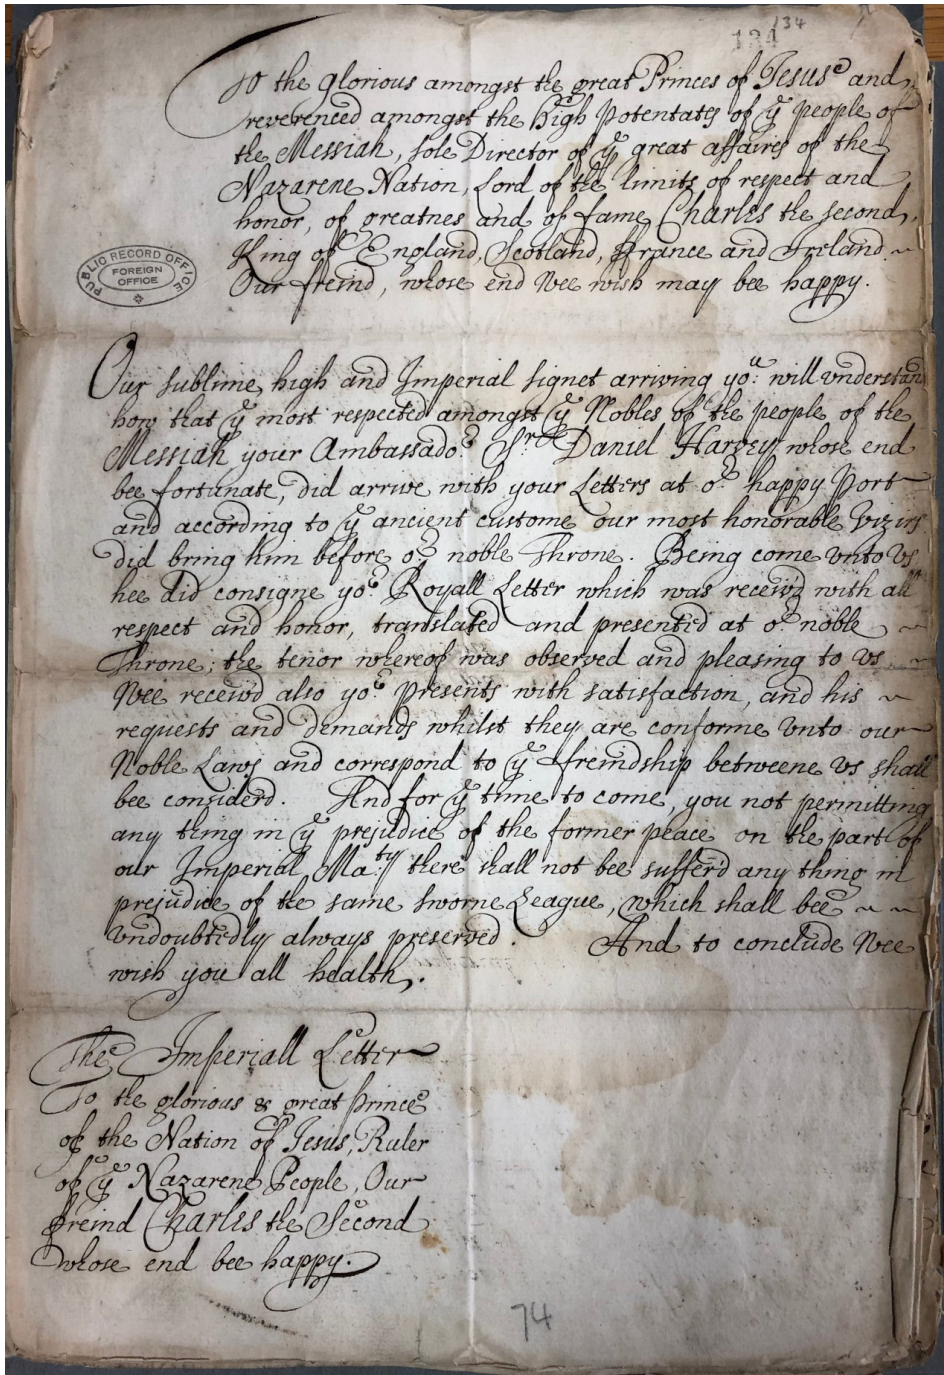 134
134
To the glorious amongst the great Princes of Jesus and
reverenced amongst the High Potentates of ye people of
the Messiah, sole Director of ye great affaires of the
Nazarene Nation, Lord of the limits of respect and
honor, of greatnes and of fame Charles the second,
King of England, Scotland, France and Ireland ~
Our freind, whose end Wee wish may bee happy.
PUBLIC RECORD OFFICE
FOREIGN
OFFICE
Our sublime, high and Imperial signet arriving you: will vnderstand
how that ye most respected amongst ye Nobles of the people of the
Messiah your Ambassador Sr. Daniel Harvey whose end
bee fortunate, did arrive with your Letters at or happy Port
and according to ye ancient custome our most honorable Vizirs
did bring him before or noble Throne. Being come vnto Vs
hee did consigne yor Royall Letter which was receiv'd with all
respect and honor, translated and presented at or noble ~
Throne; the tenor whereof was observed and pleasing to Vs ~
Wee receivd also yor presents with satisfaction, and his ~
requests and demands whilst they are conforme vnto our
Noble Laws and correspond to ye freindship betweene Vs shall
bee considerd. And for ye time to come, you not permitting
any thing in ye prejudice of the former peace on the part of
our Imperial Maty: there shall not bee sufferd any thing in
prejudice of the same sworne League, which shall bee ~ ~
vndoubtedly always preserved. And to conclude Wee
wish you all health.
The Imperiall Letter
To the glorious & great Prince
of the Nation of Jesus, Ruler
of ye Nazarene People, Our
freind Charles the Second
whose end bee happy.
74